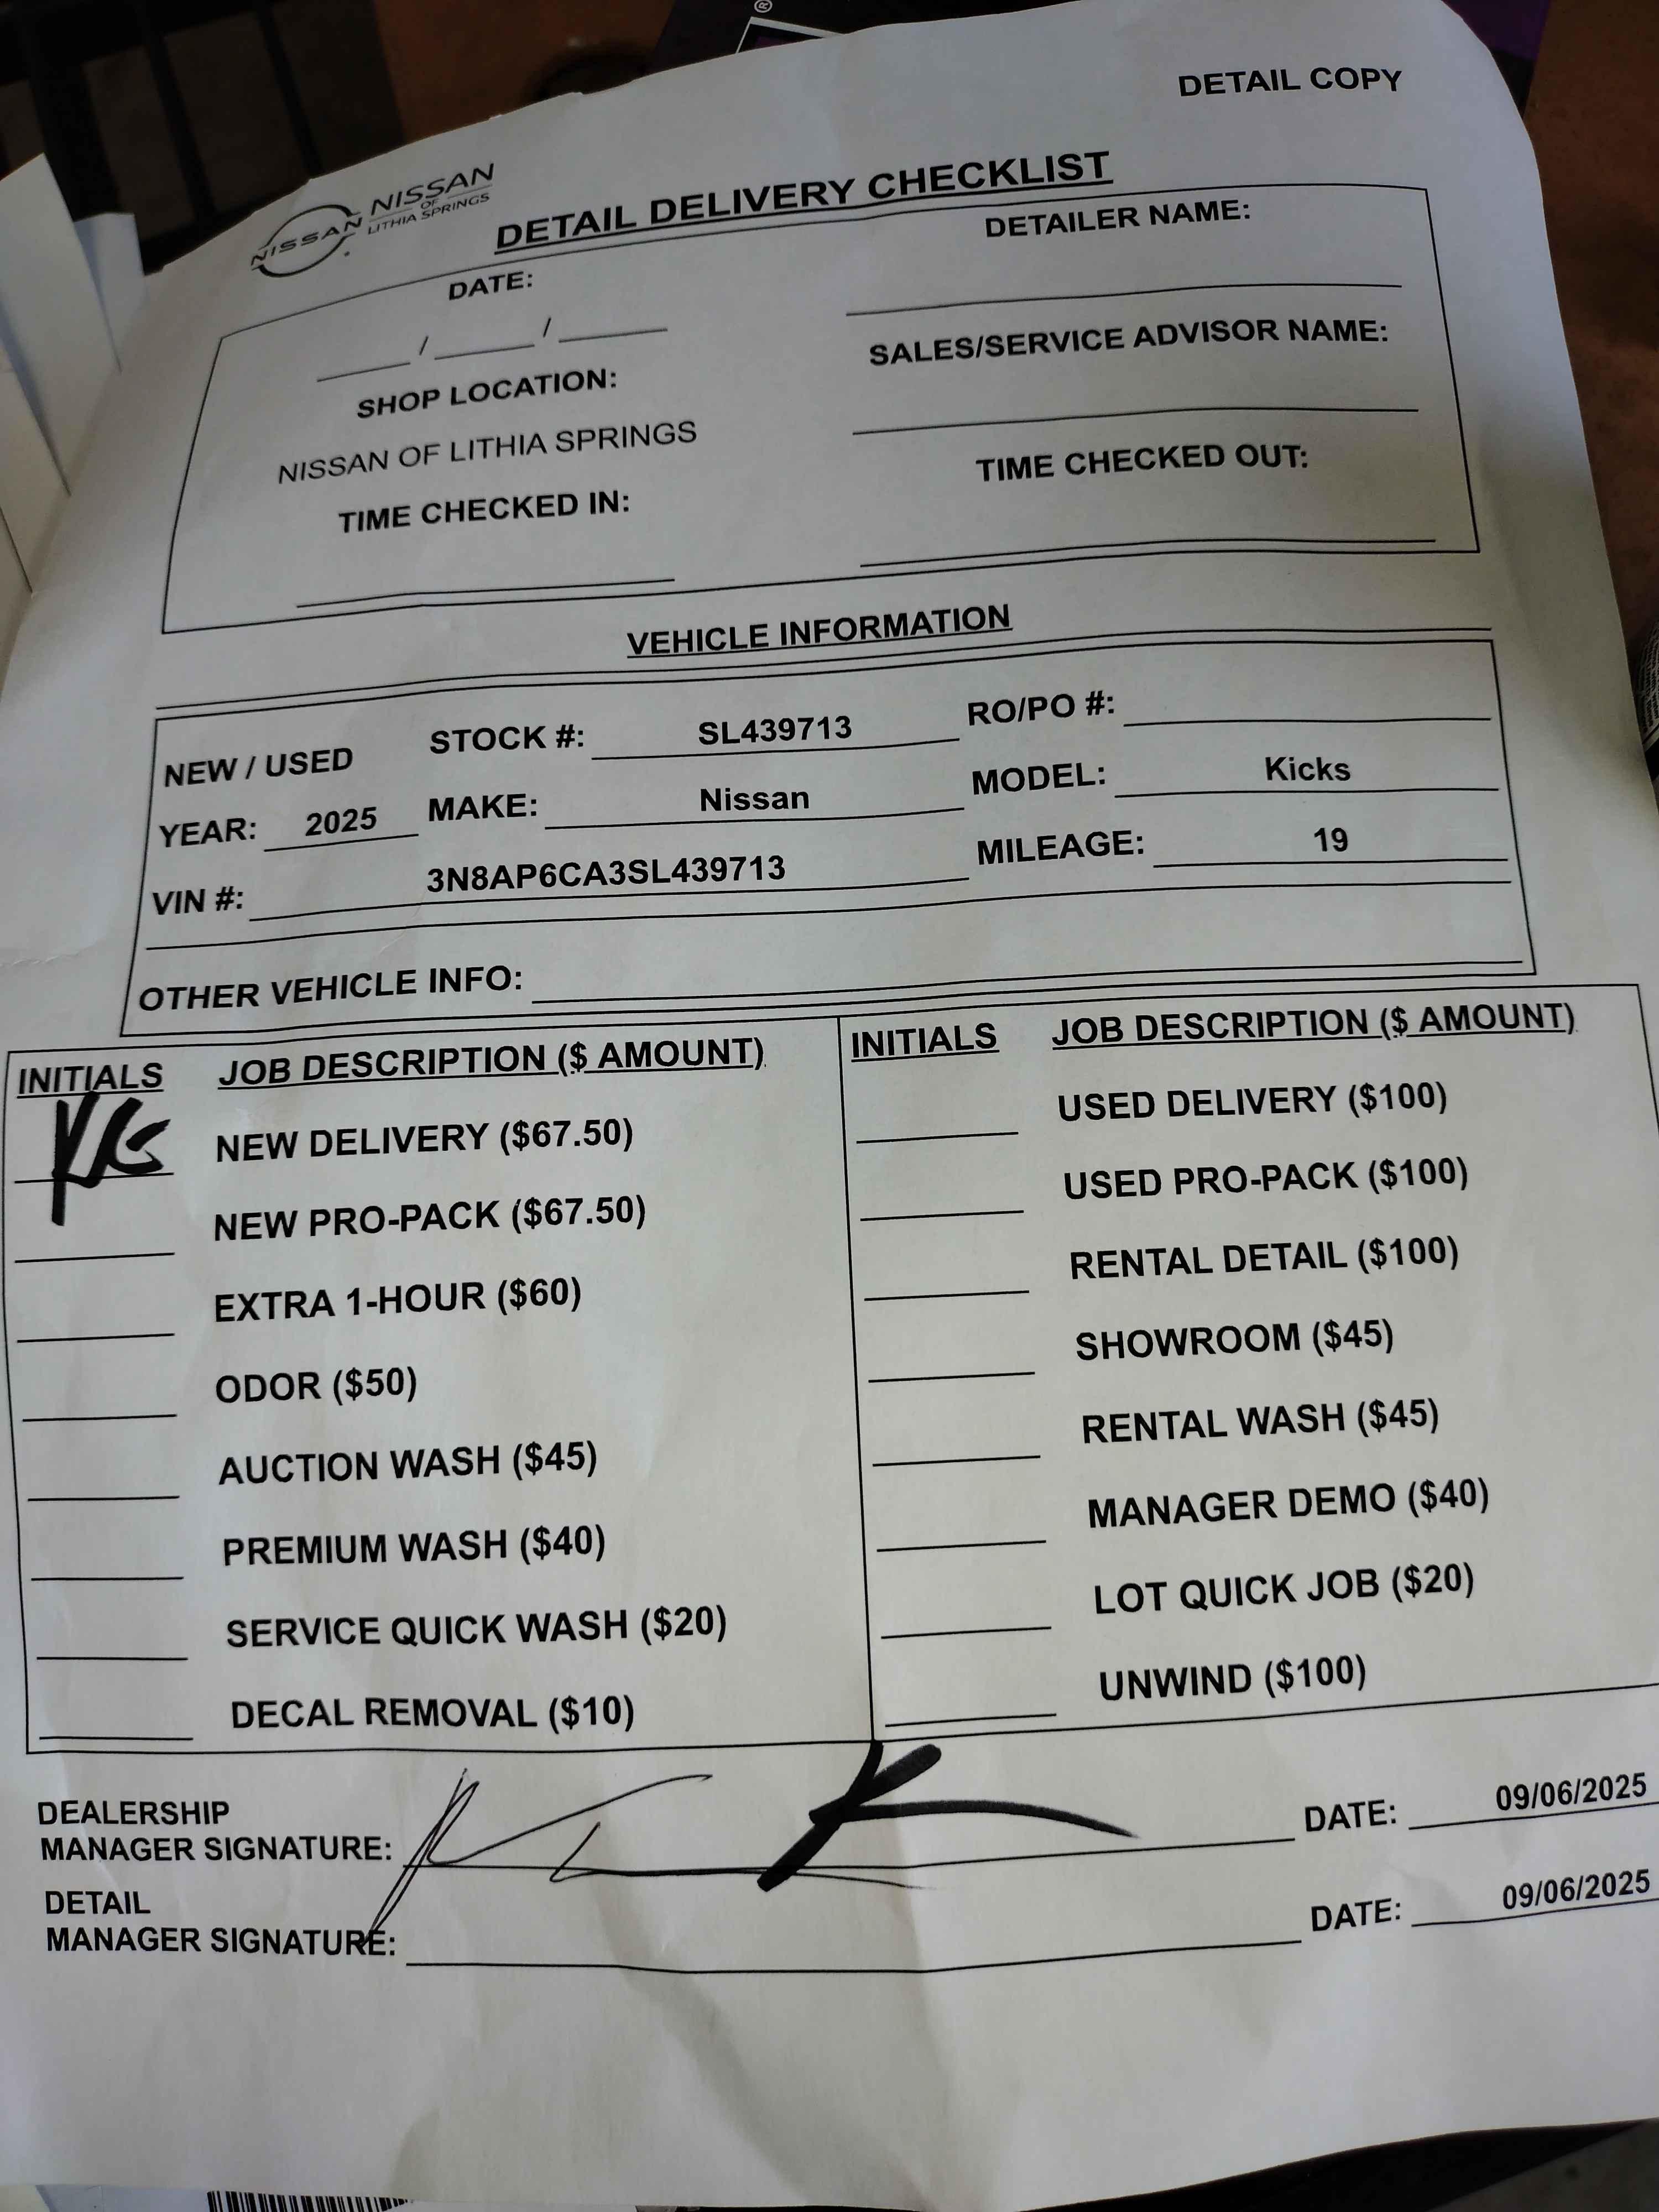 DETAIL COPY
NISSAN
NISSAN
OF
LITHIA SPRINGS
DETAIL DELIVERY CHECKLIST
DATE:
/ /
DETAILER NAME:
SHOP LOCATION:
NISSAN OF LITHIA SPRINGS
SALES/SERVICE ADVISOR NAME:
TIME CHECKED IN:
TIME CHECKED OUT:
VEHICLE INFORMATION
NEW / USED STOCK #: SL439713 RO/PO #:
YEAR: 2025 MAKE: Nissan MODEL: Kicks
VIN #: 3N8AP6CA3SL439713 MILEAGE: 19
OTHER VEHICLE INFO:
INITIALS JOB DESCRIPTION ($ AMOUNT)
NEW DELIVERY ($67.50)
NEW PRO-PACK ($67.50)
EXTRA 1-HOUR ($60)
ODOR ($50)
AUCTION WASH ($45)
PREMIUM WASH ($40)
SERVICE QUICK WASH ($20)
DECAL REMOVAL ($10)
INITIALS JOB DESCRIPTION ($ AMOUNT)
USED DELIVERY ($100)
USED PRO-PACK ($100)
RENTAL DETAIL ($100)
SHOWROOM ($45)
RENTAL WASH ($45)
MANAGER DEMO ($40)
LOT QUICK JOB ($20)
UNWIND ($100)
DEALERSHIP
MANAGER SIGNATURE: DATE: 09/06/2025
DETAIL
MANAGER SIGNATURE: DATE: 09/06/2025